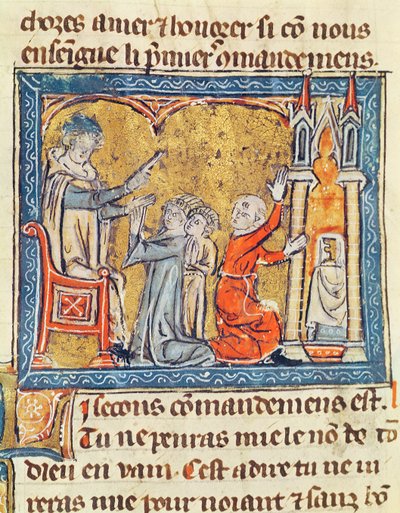 chozes amer ⁊ honorer si cō nous
enseigne li p̄miers ꝯmandemens.
I secons cōmandemens est.
Tu ne penras mie le nō de tō
dieu en vain. Cest a dire tu ne iu
reras mie pour noiant ⁊ sanz bō